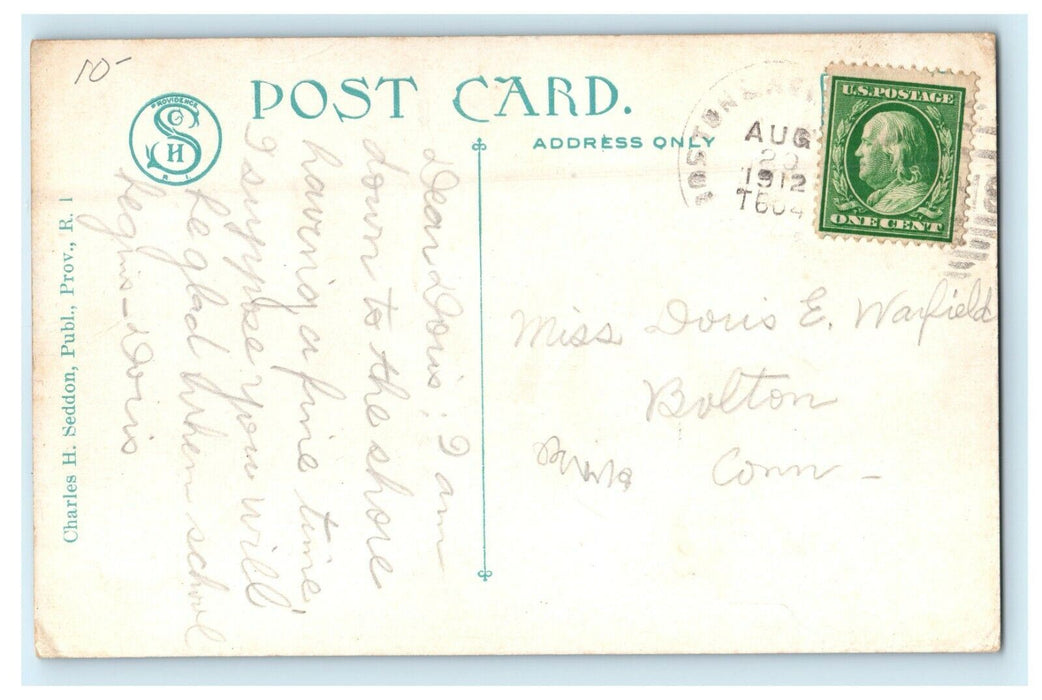 10-
PROVIDENCE
S Co H
R.I.
POST CARD.
ADDRESS ONLY
BOSTON
AUG
20
1912
U.S. POSTAGE
ONE CENT
Charles H. Seddon, Publ., Prov., R. I
Dear Doris: I am
down to the shore
having a fine time
I suppose you will
be glad when school
begins - Doris
Miss Doris E. Warfield
Bolton
Conn -